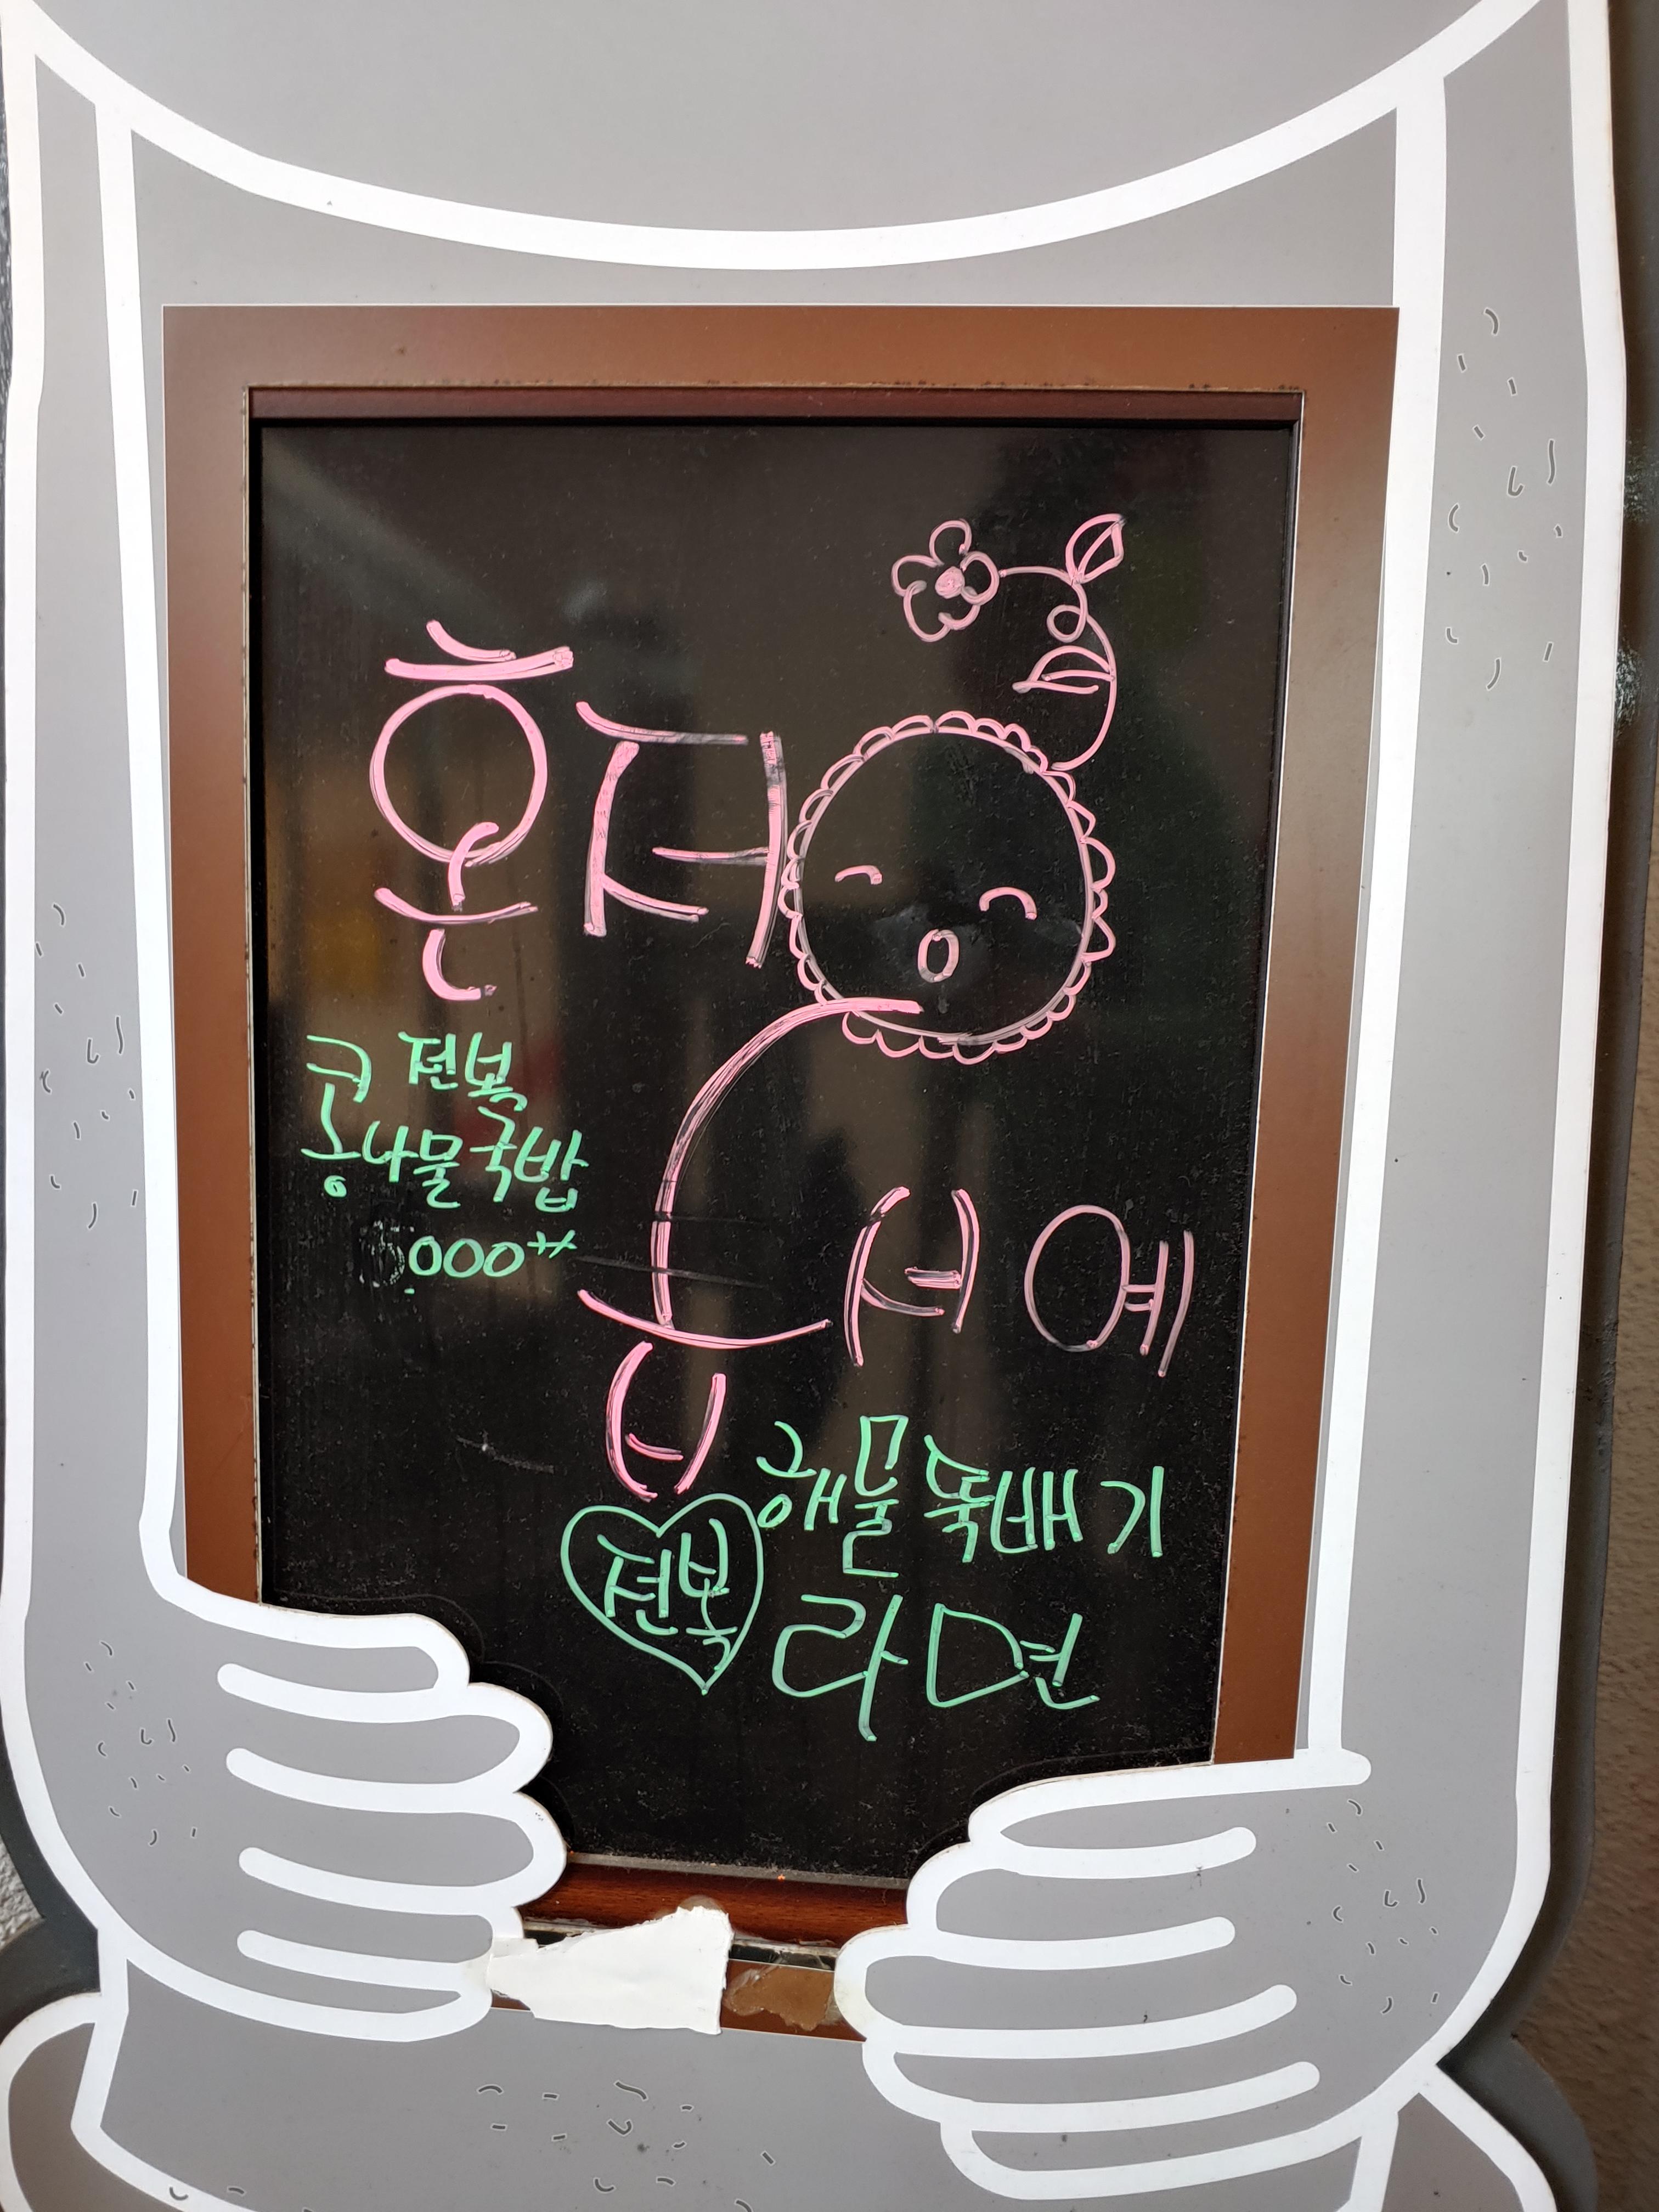 혼저
옵서예
전복
콩나물국밥
해물뚝배기
전복 라면